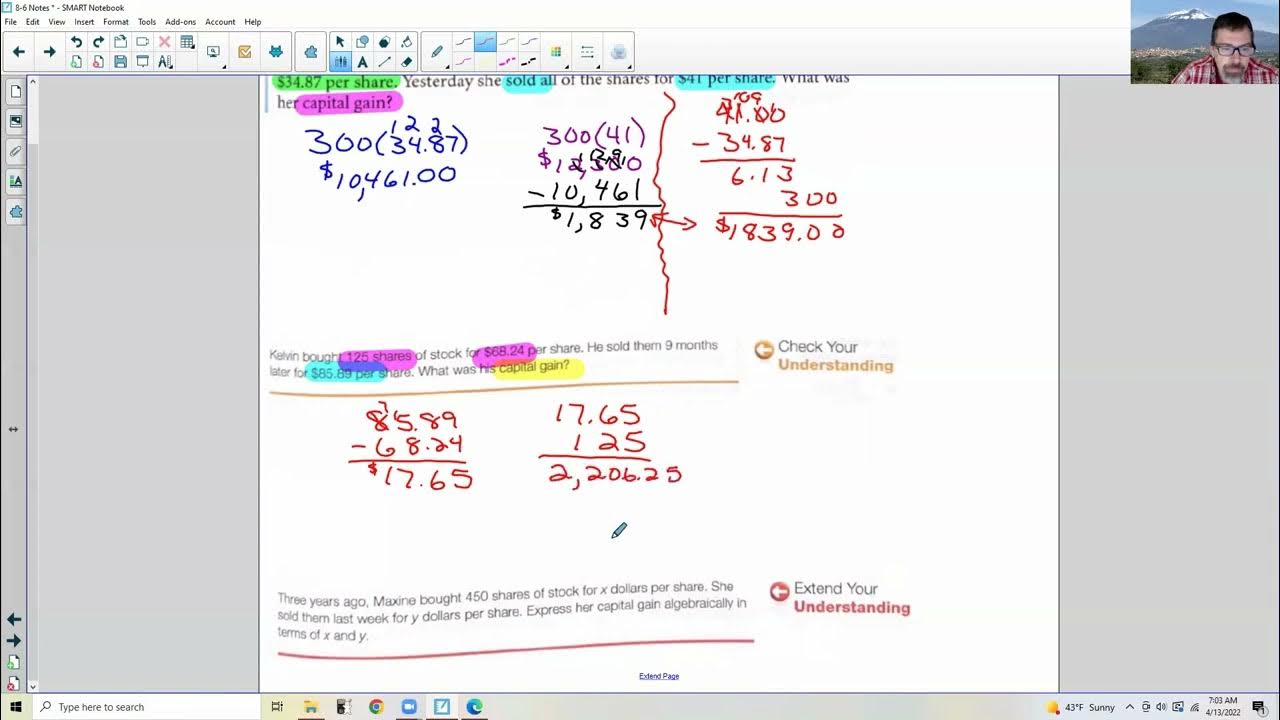 8-6 Notes * - SMART Notebook
File Edit View Insert Format Tools Add-ons Account Help
$34.87 per share. Yesterday she sold all of the shares for $41 per share. What was
her capital gain?
300(34.87)
$10,461.00
300(41)
$12,300
-10,461
$1,839
41.00
- 34.87
6.13
300
$1839.00
Kelvin bought 125 shares of stock for $68.24 per share. He sold them 9 months
later for $85.89 per share. What was his capital gain?
Check Your
Understanding
85.89
- 68.24
$17.65
17.65
125
2,206.25
Three years ago, Maxine bought 450 shares of stock for x dollars per share. She
sold them last week for y dollars per share. Express her capital gain algebraically in
terms of x and y.
Extend Your
Understanding
Extend Page
Type here to search
43°F Sunny
7:03 AM
4/13/2022